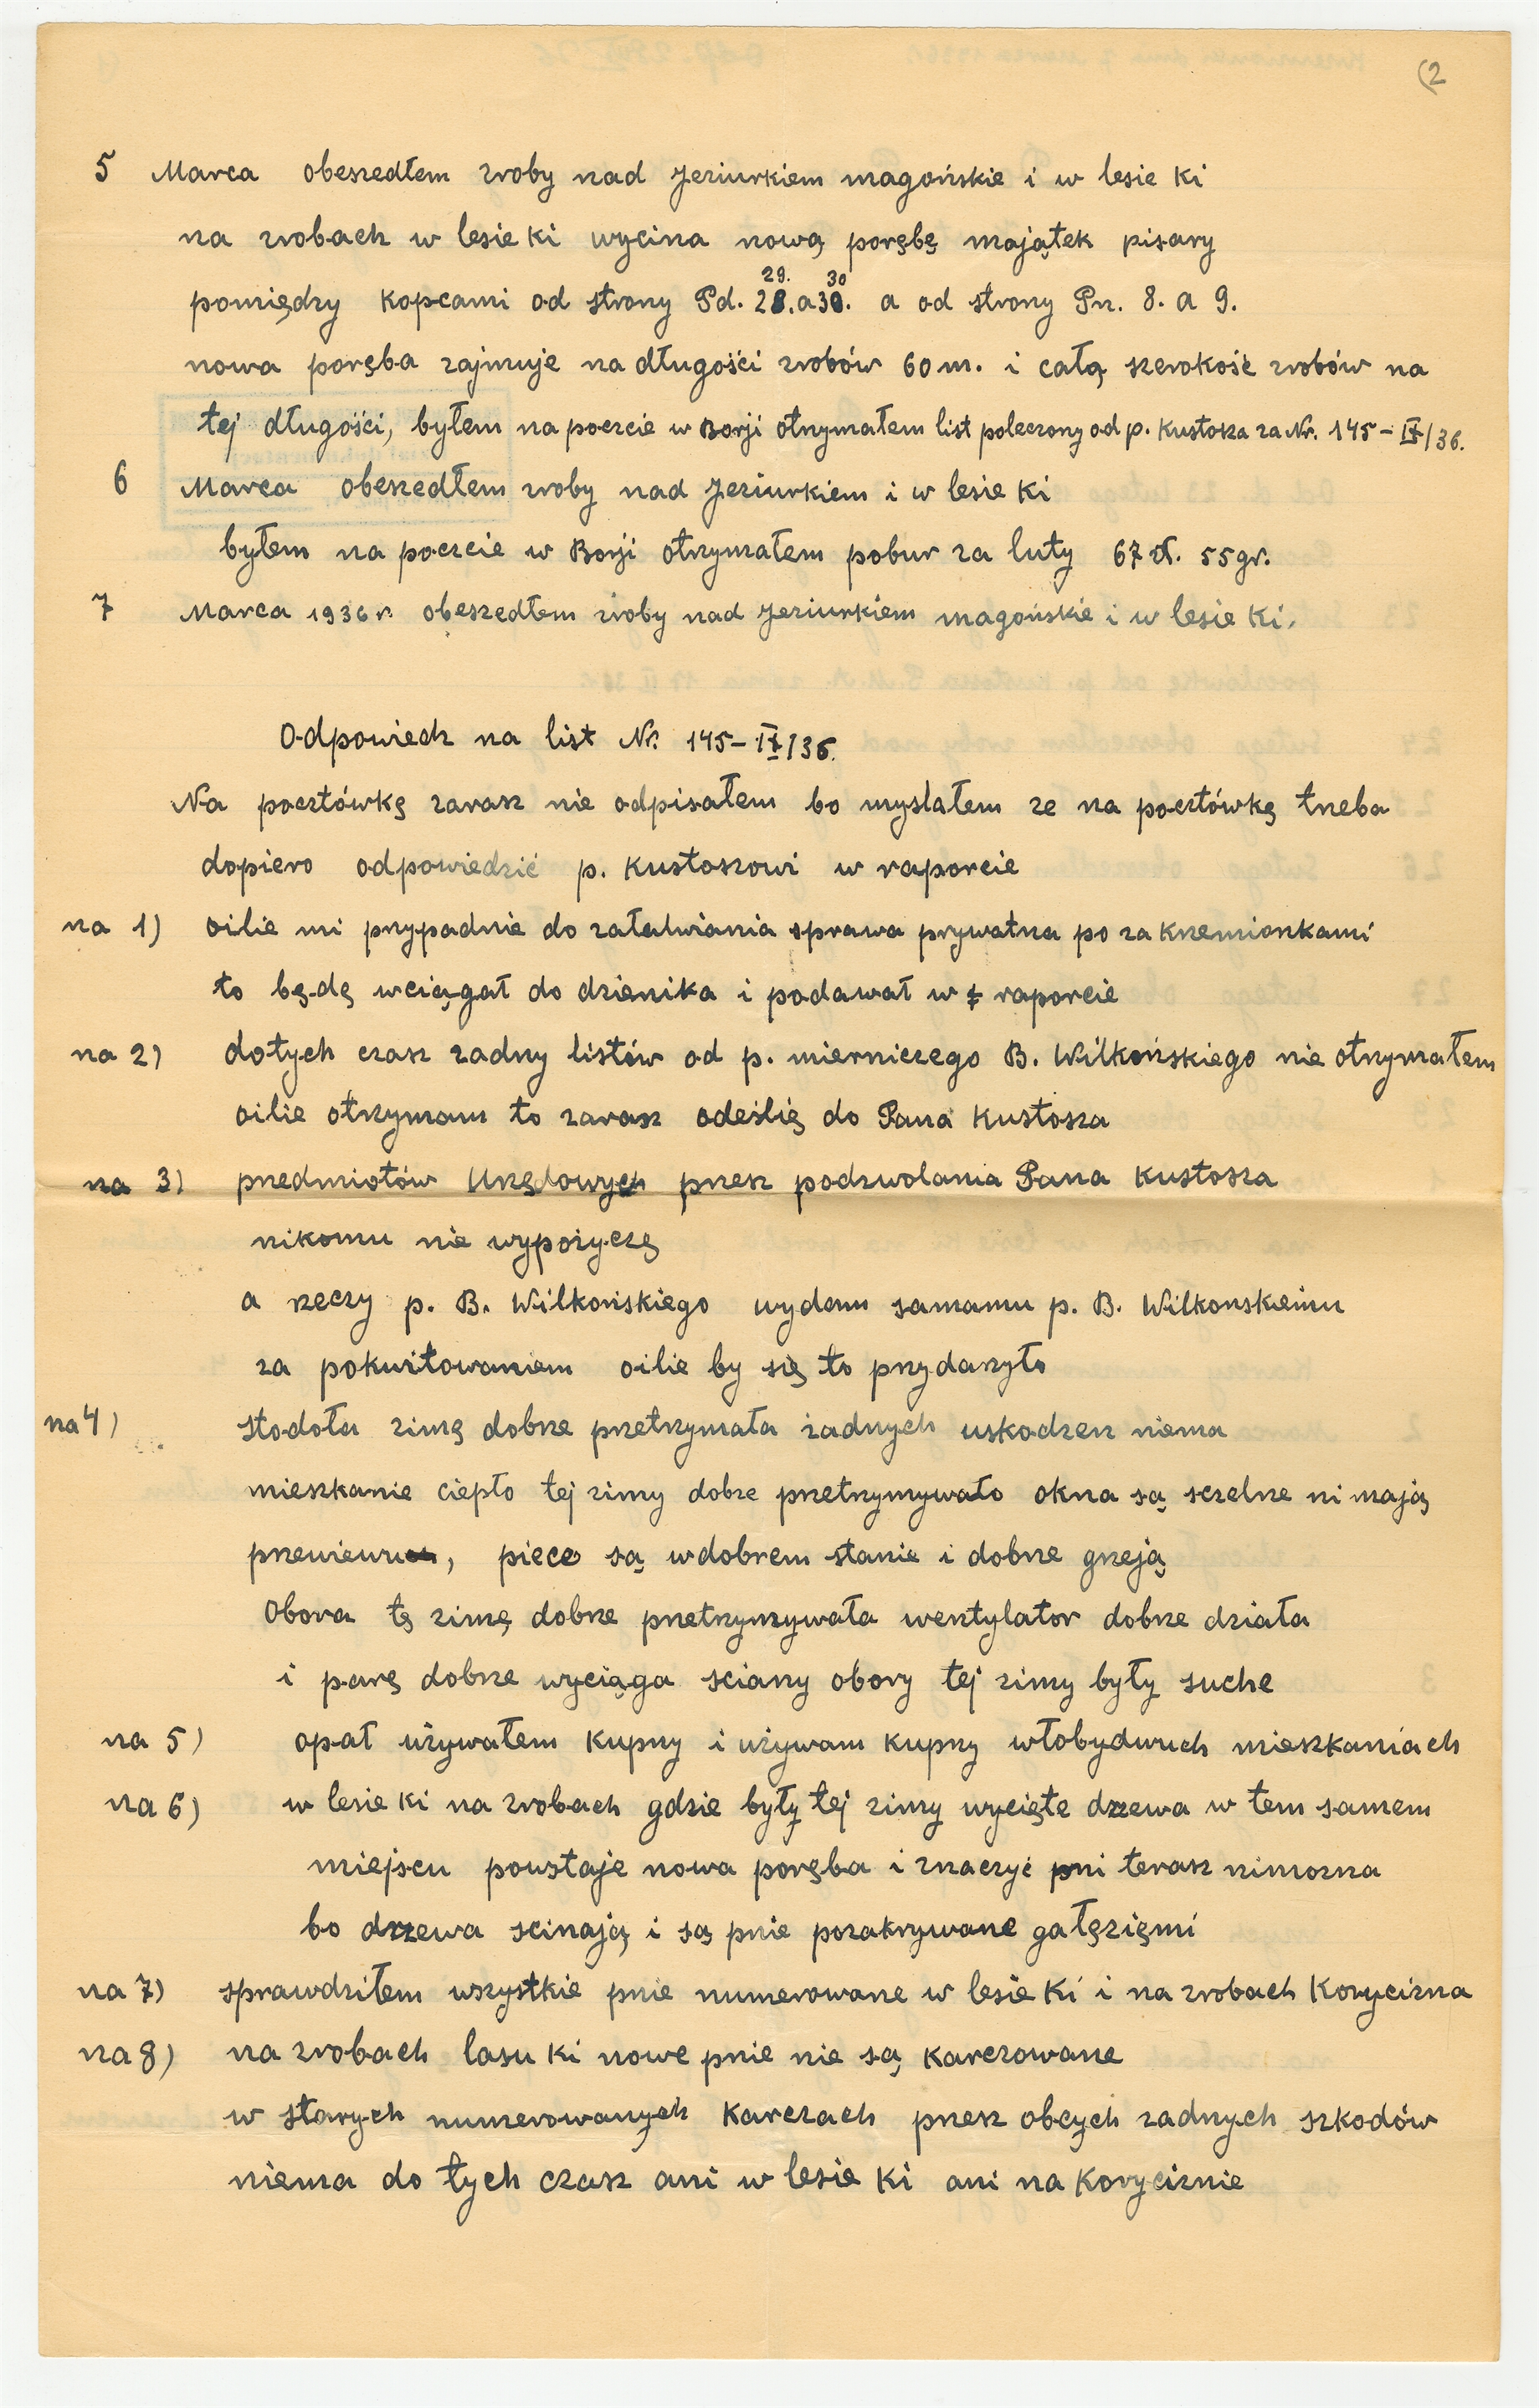 (2
5 Marca obeszedłem zroby nad Jeziurkiem magońskie i w lesie Ki
na zrobach w lesie Ki wycina nową porębę majątek pisary
29. 30
pomiędzy kopcami od strony Pd. 28. a 30. a od strony Pn. 8. a 9.
nowa poręba zajmuje na długości zrobów 60 m. i całą szerokość zrobów na
tej długości, byłem na poczcie w Borji otrzymałem list poleczony od p. Kustosza za Nr. 145-IX/36.
6 Marca obeszedłem zroby nad Jeziurkiem i w lesie Ki
byłem na poczcie w Borji otrzymałem pobur za luty 67 zł. 55 gr.
7 Marca 1936 r. obeszedłem zroby nad Jeziurkiem magońskie i w lesie Ki.
Odpowiedz na list Nr. 145-IX/36.
Na pocztówkę zarasz nie odpisałem bo myslałem ze na pocztówkę trzeba
dopiero odpowiedzić p. Kustoszowi w raporcie
na 1) oilie mi przypadnie do załatwiania sprawa prywatna po za Krzemionkami
to będę wciągał do dzienika i podawał w raporcie
na 2) dotych czasz zadny listów od p. mierniczego B. Wilkońskiego nie otrzymałem
oilie otrzymam to zarasz odeślię do Pana Kustosza
na 3) przedmiotów Urzędowych przesz podzwolania Pana Kustosza
nikomu nie wypożyczę
a rzeczy p. B. Wilkońskiego wydam samamu p. B. Wilkonskiemu
za pokwitowaniem oilie by się to przydarzyło
na 4) stodoła zimę dobrze przetrzymała żadnych uskodzen niema
mieszkanie ciepło tej zimy dobrze przetrzymywało okna są sczelne ni mają
przewiewu, piece są w dobrem stanie i dobrze grzeją
Obora tę zimę dobrze przetrzymywała wentylator dobrze działa
i parę dobrze wyciąga sciany obory tej zimy były suche
na 5) opał używałem Kupny i używam kupny włobydwuch mieszkaniach
na 6) w lesie Ki na zrobach gdzie były tej zimy wycięte drzewa w tem samem
miejscu powstaje nowa poręba i znaczyć pni terasz nimozna
bo drzewa scinają i są pnie pozakrywane gałęzięmi
na 7) sprawdziłem wszystkie pnie numerowane w lesie Ki i na zrobach Korycizna
na 8) na zrobach lasu Ki nowe pnie nie są karczowane
w starych numerowanych Karczach przesz obcych zadnych szkodów
niema do tych czasz ani w lesie Ki ani na Koryciznie